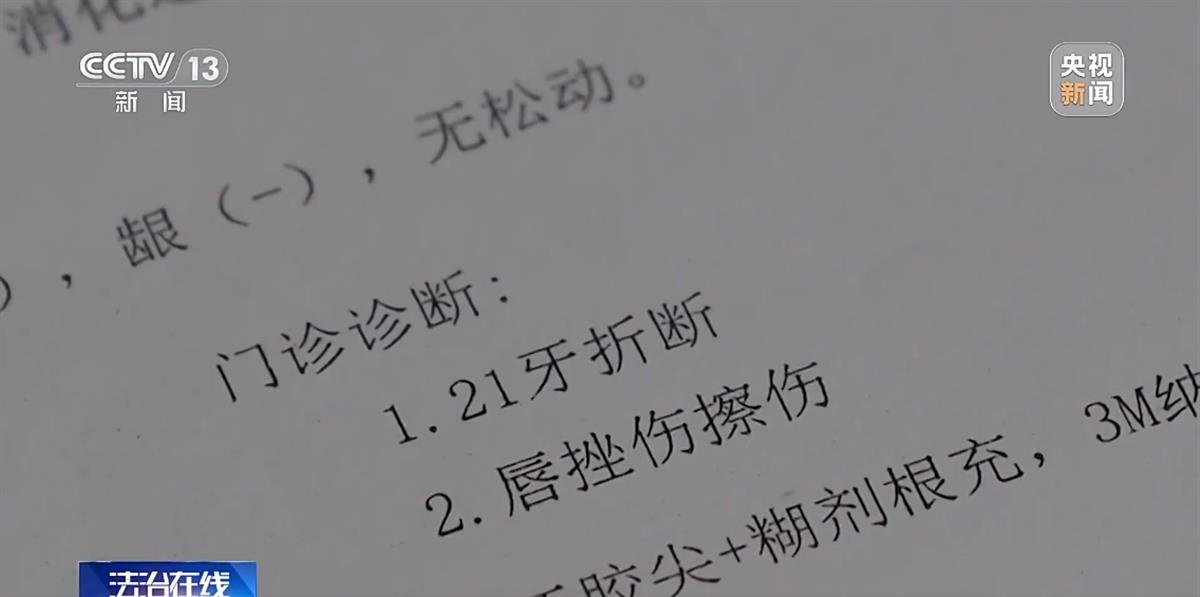 CCTV 13
新闻
央视
新闻
消化道
），龈（一），无松动。
门诊诊断：
1.21牙折断
2.唇挫伤擦伤
胶尖+糊剂根充，3M纳
法治在线